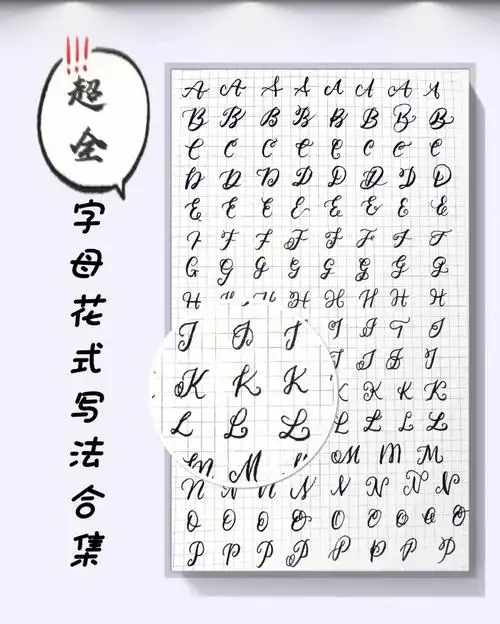 !!!
超全
字母花式写法合集
A A A A A A A A
B B B B B B B B
C C C C C C C C
D D D D D D D D
E E E E E E E E
F F F F F F F F
G G G G G G G G
H H H H H H H H
I I I I
J J J J
K K K K
L L L L
M M M
N N N N N N N N
O O O O O O O O O
P P P P P P P P
J J J
K K K
L L L
M M